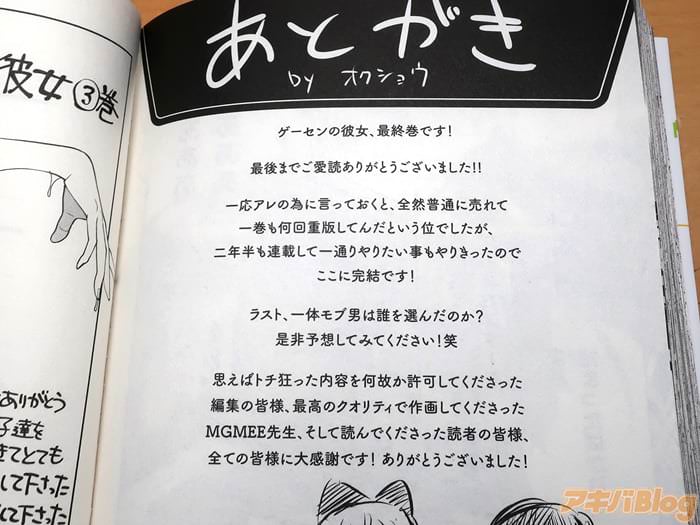 あとがき
by オクショウ
ゲーセンの彼女、最終巻です!
最後までご愛読ありがとうございました!!
一応アレの為に言っておくと、全然普通に売れて
一巻も何回重版してんだという位でしたが、
二年半も連載して一通りやりたい事もやりきったので
ここに完結です!
ラスト、一体モブ男は誰を選んだのか?
是非予想してみてください!笑
思えばトチ狂った内容を何故か許可してくださった
編集の皆様、最高のクオリティで作画してくださった
MGMEE先生、そして読んでくださった読者の皆様、
全ての皆様に大感謝です! ありがとうございました!
彼女③巻
ありがとう
子達を
きてとても
して下さった
して下さった
アキバBlog